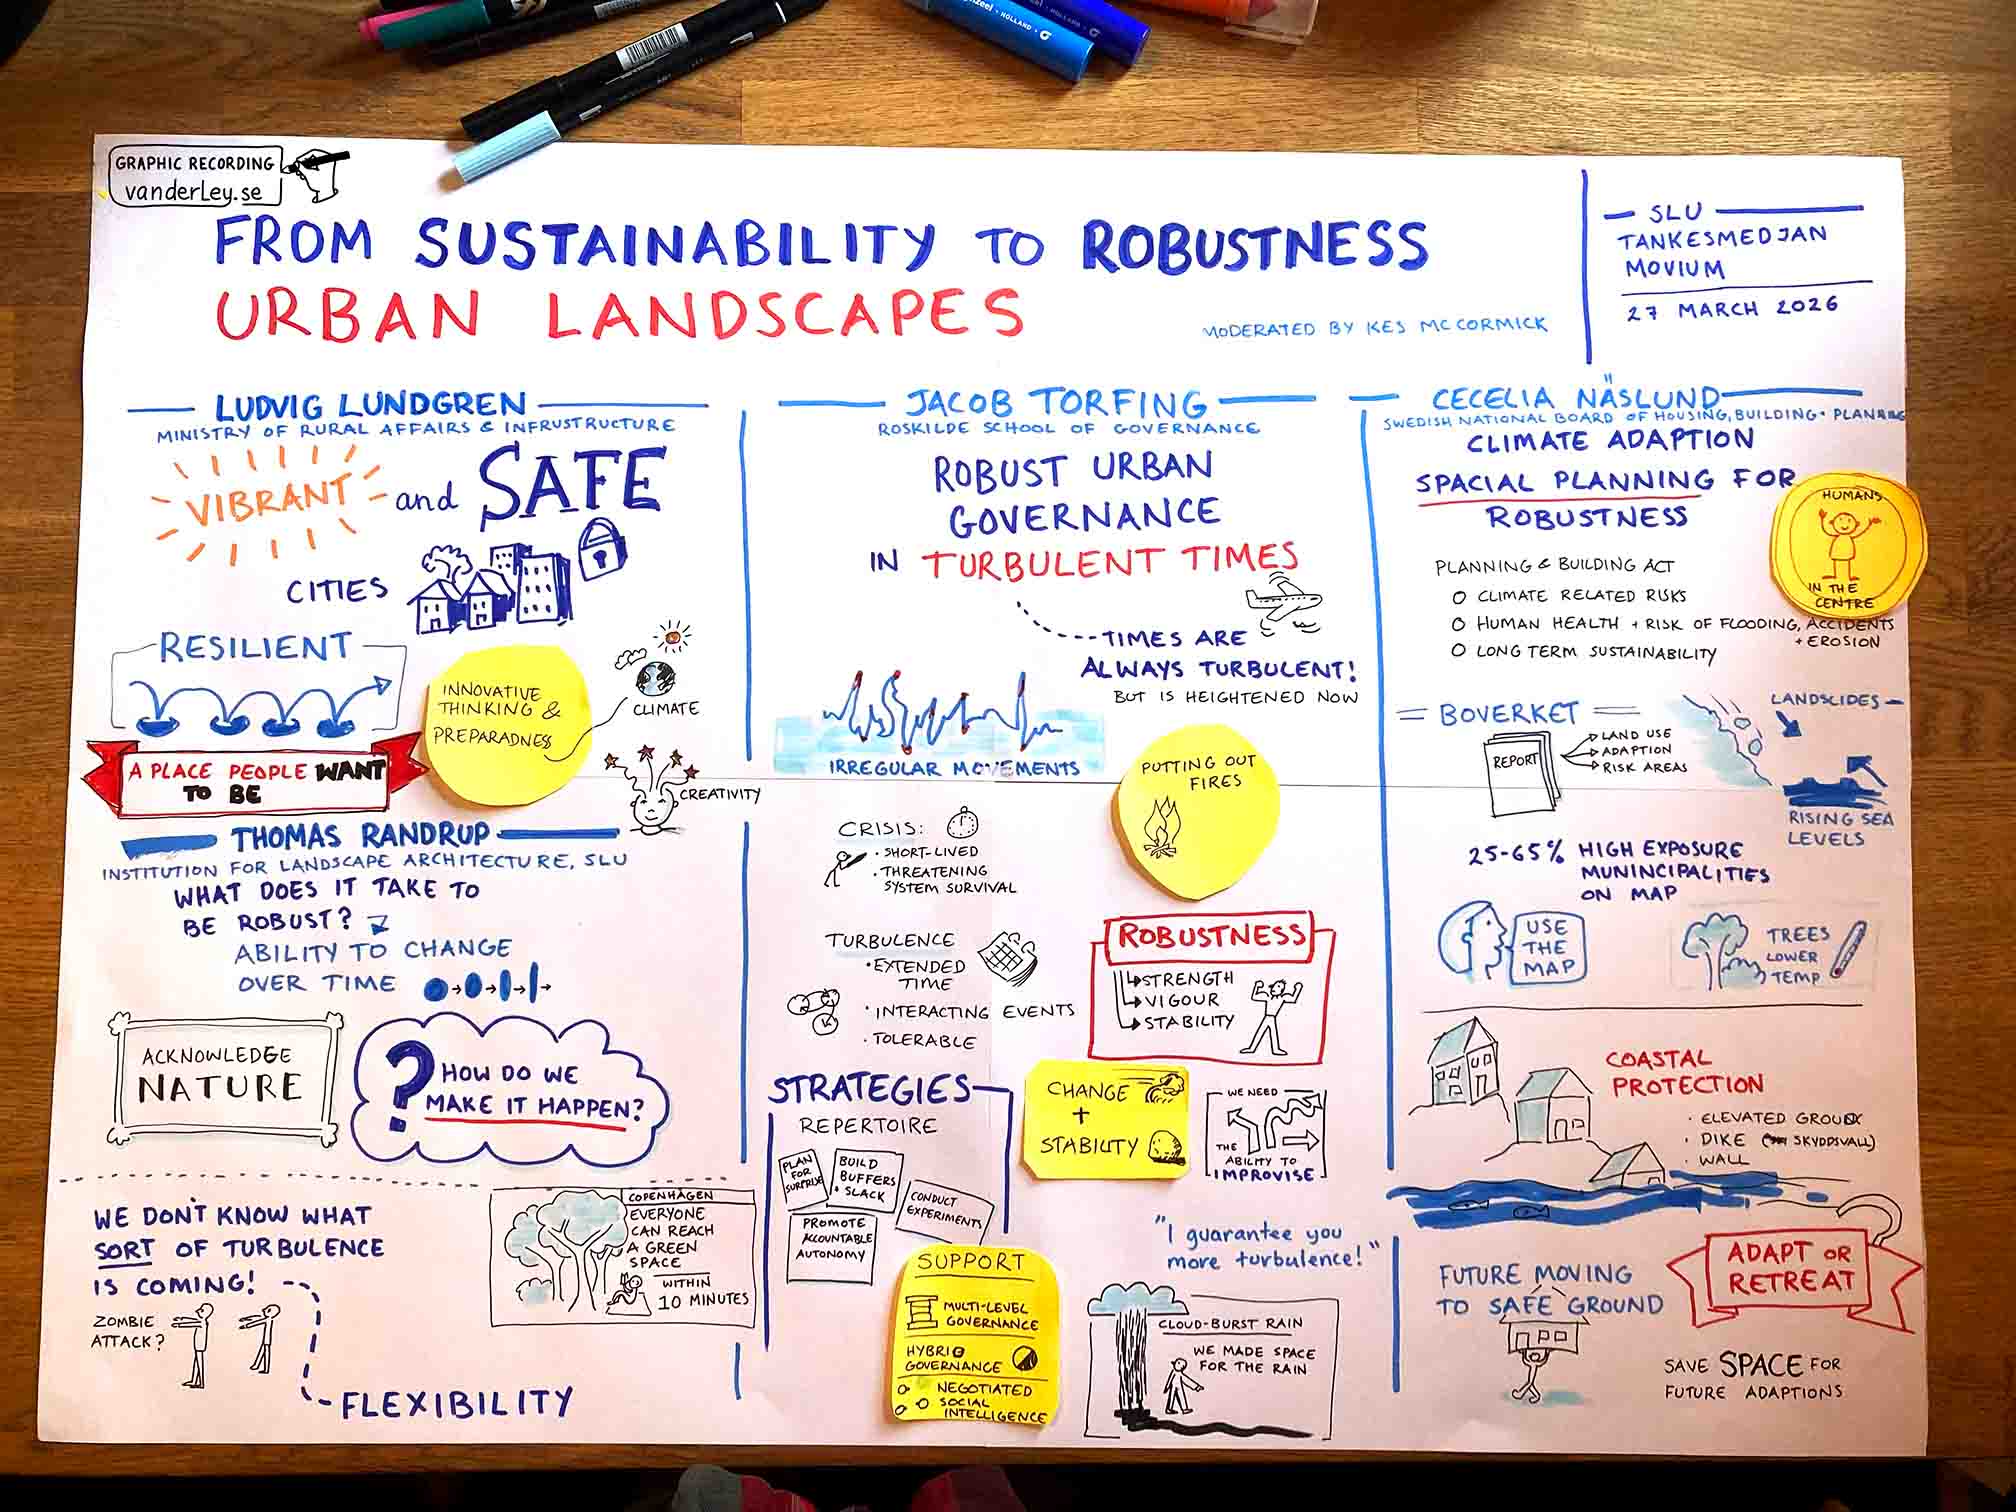 GRAPHIC RECORDING
vanderLey.se
FROM SUSTAINABILITY TO ROBUSTNESS
URBAN LANDSCAPES
MODERATED BY KES MCCORMICK
SLU
TANKESMEDJAN
MOVIUM
27 MARCH 2026
LUDVIG LUNDGREN
MINISTRY OF RURAL AFFAIRS & INFRUSTRUCTURE
VIBRANT and SAFE
CITIES
RESILIENT
INNOVATIVE
THINKING &
PREPARADNESS
CLIMATE
CREATIVITY
A PLACE PEOPLE WANT
TO BE
THOMAS RANDRUP
INSTITUTION FOR LANDSCAPE ARCHITECTURE, SLU
WHAT DOES IT TAKE TO
BE ROBUST?
ABILITY TO CHANGE
OVER TIME
ACKNOWLEDGE
NATURE
? HOW DO WE
MAKE IT HAPPEN?
WE DON'T KNOW WHAT
SORT OF TURBULENCE
IS COMING!
ZOMBIE
ATTACK?
FLEXIBILITY
COPENHAGEN
EVERYONE
CAN REACH
A GREEN
SPACE
WITHIN
10 MINUTES
JACOB TORFING
ROSKILDE SCHOOL OF GOVERNANCE
ROBUST URBAN
GOVERNANCE
IN TURBULENT TIMES
TIMES ARE
ALWAYS TURBULENT!
BUT IS HEIGHTENED NOW
IRREGULAR MOVEMENTS
PUTTING OUT
FIRES
CRISIS:
· SHORT-LIVED
· THREATENING
SYSTEM SURVIVAL
TURBULENCE
· EXTENDED
TIME
· INTERACTING EVENTS
· TOLERABLE
ROBUSTNESS
STRENGTH
VIGOUR
STABILITY
STRATEGIES
REPERTOIRE
PLAN
FOR
SURPRISE
BUILD
BUFFERS
+ SLACK
CONDUCT
EXPERIMENTS
PROMOTE
ACCOUNTABLE
AUTONOMY
CHANGE
+
STABILITY
WE NEED
THE
ABILITY TO
IMPROVISE
SUPPORT
MULTI-LEVEL
GOVERNANCE
HYBRID
GOVERNANCE
NEGOTIATED
SOCIAL
INTELLIGENCE
"I guarantee you
more turbulence!"
CLOUD-BURST RAIN
WE MADE SPACE
FOR THE RAIN
CECELIA NÄSLUND
SWEDISH NATIONAL BOARD OF HOUSING, BUILDING + PLANNING
CLIMATE ADAPTION
SPACIAL PLANNING FOR
ROBUSTNESS
HUMANS
IN THE
CENTRE
PLANNING & BUILDING ACT
O CLIMATE RELATED RISKS
O HUMAN HEALTH + RISK OF FLOODING, ACCIDENTS
+ EROSION
O LONG TERM SUSTAINABILITY
BOVERKET
REPORT
LAND USE
ADAPTION
RISK AREAS
LANDSCIDES
RISING SEA
LEVELS
25-65% HIGH EXPOSURE
MUNINCIPALITIES
ON MAP
USE
THE
MAP
TREES
LOWER
TEMP
COASTAL
PROTECTION
· ELEVATED GROUND
· DIKE (SKYDDSVALL)
· WALL
FUTURE MOVING
TO SAFE GROUND
ADAPT OR
RETREAT
SAVE SPACE FOR
FUTURE ADAPTIONS